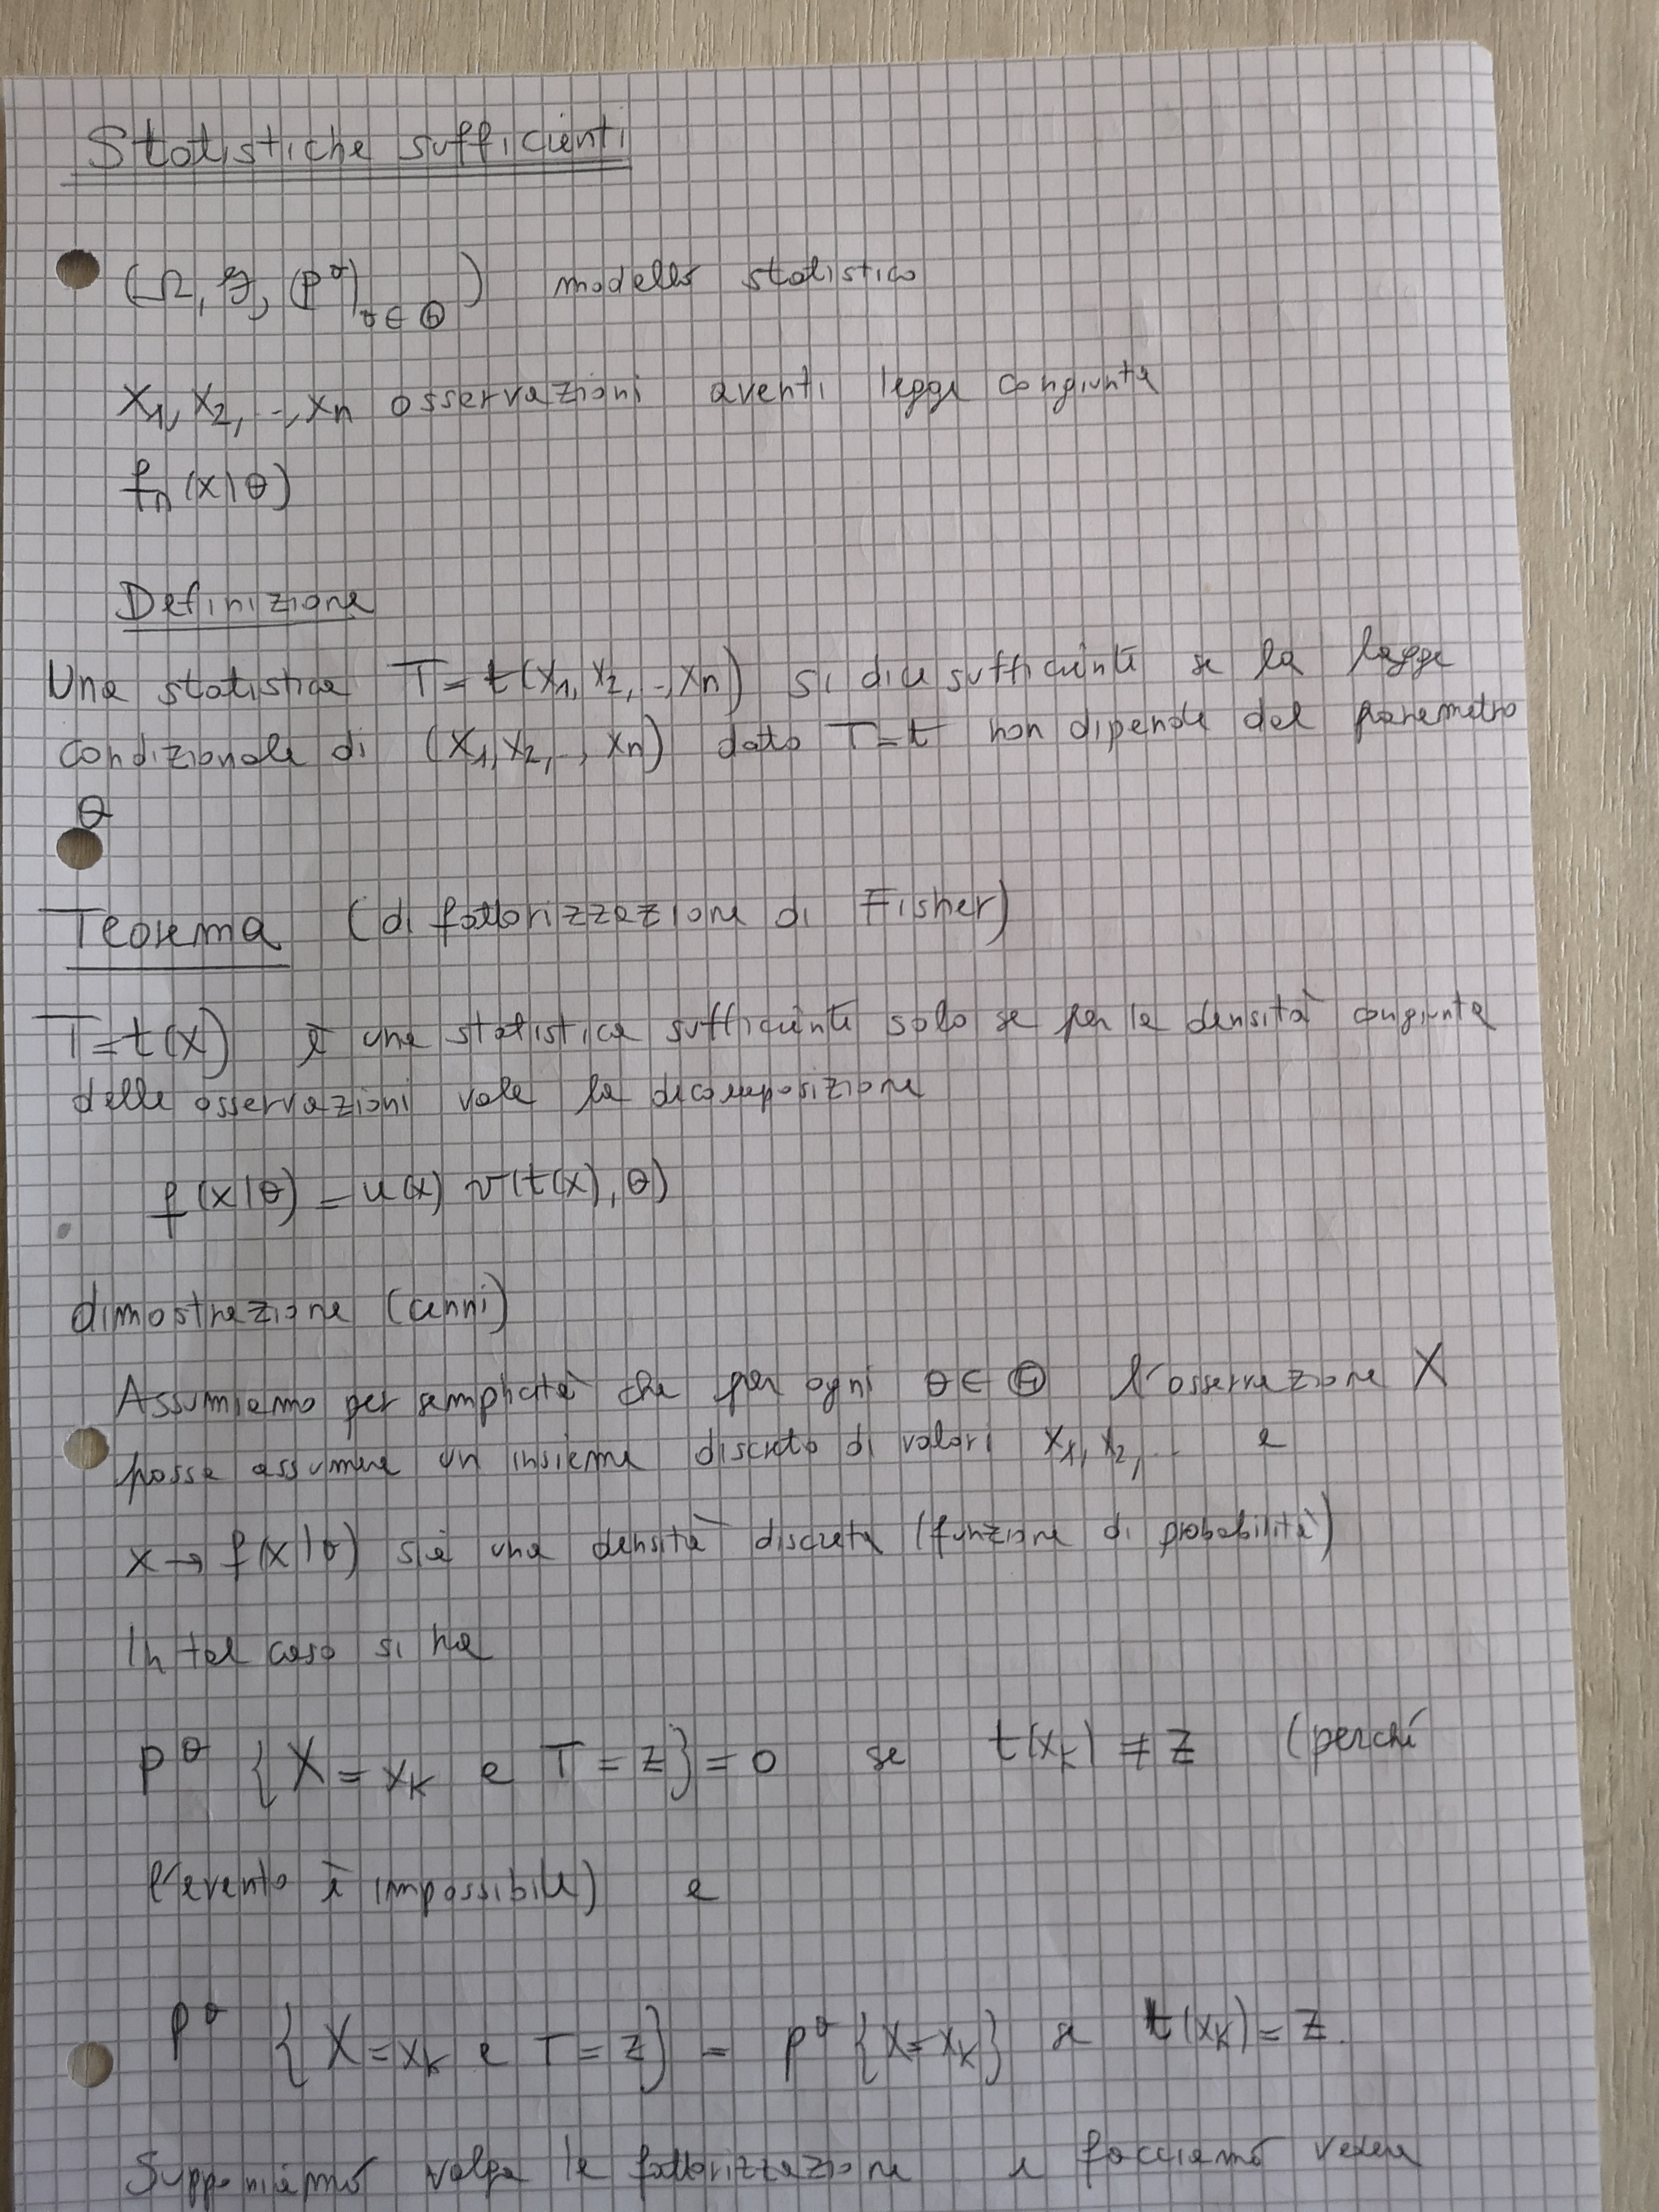 Statistiche sufficienti
(Ω, F, (P^θ)_{θ∈Θ}) modello statistico
X₁, X₂, .., Xn osservazioni aventi legge congiunta
fn(x|θ)
Definizione
Una statistica T = t(X₁, X₂, .., Xn) si dice sufficiente se la legge
condizionale di (X₁, X₂, .., Xn) dato T=t non dipende dal parametro
θ
Teorema (di fattorizzazione di Fisher)
T=t(X) è una statistica sufficiente solo se per la densità congiunta
delle osservazioni vale la decomposizione
f(x|θ) = u(x) v(t(x), θ)
dimostrazione (cenni)
Assumiamo per semplicità che per ogni θ∈Θ l'osservazione X
possa assumere un insieme discreto di valori x₁, x₂, .. e
x → f(x|θ) sia una densità discreta (funzione di probabilità)
In tal caso si ha
P^θ {X = x_k e T = z} = 0 se t(x_k) ≠ z (perché
l'evento è impossibile) e
P^θ {X = x_k e T = z} = P^θ {X = x_k} se t(x_k) = z.
Supponiamo valga la fattorizzazione e facciamo vedere